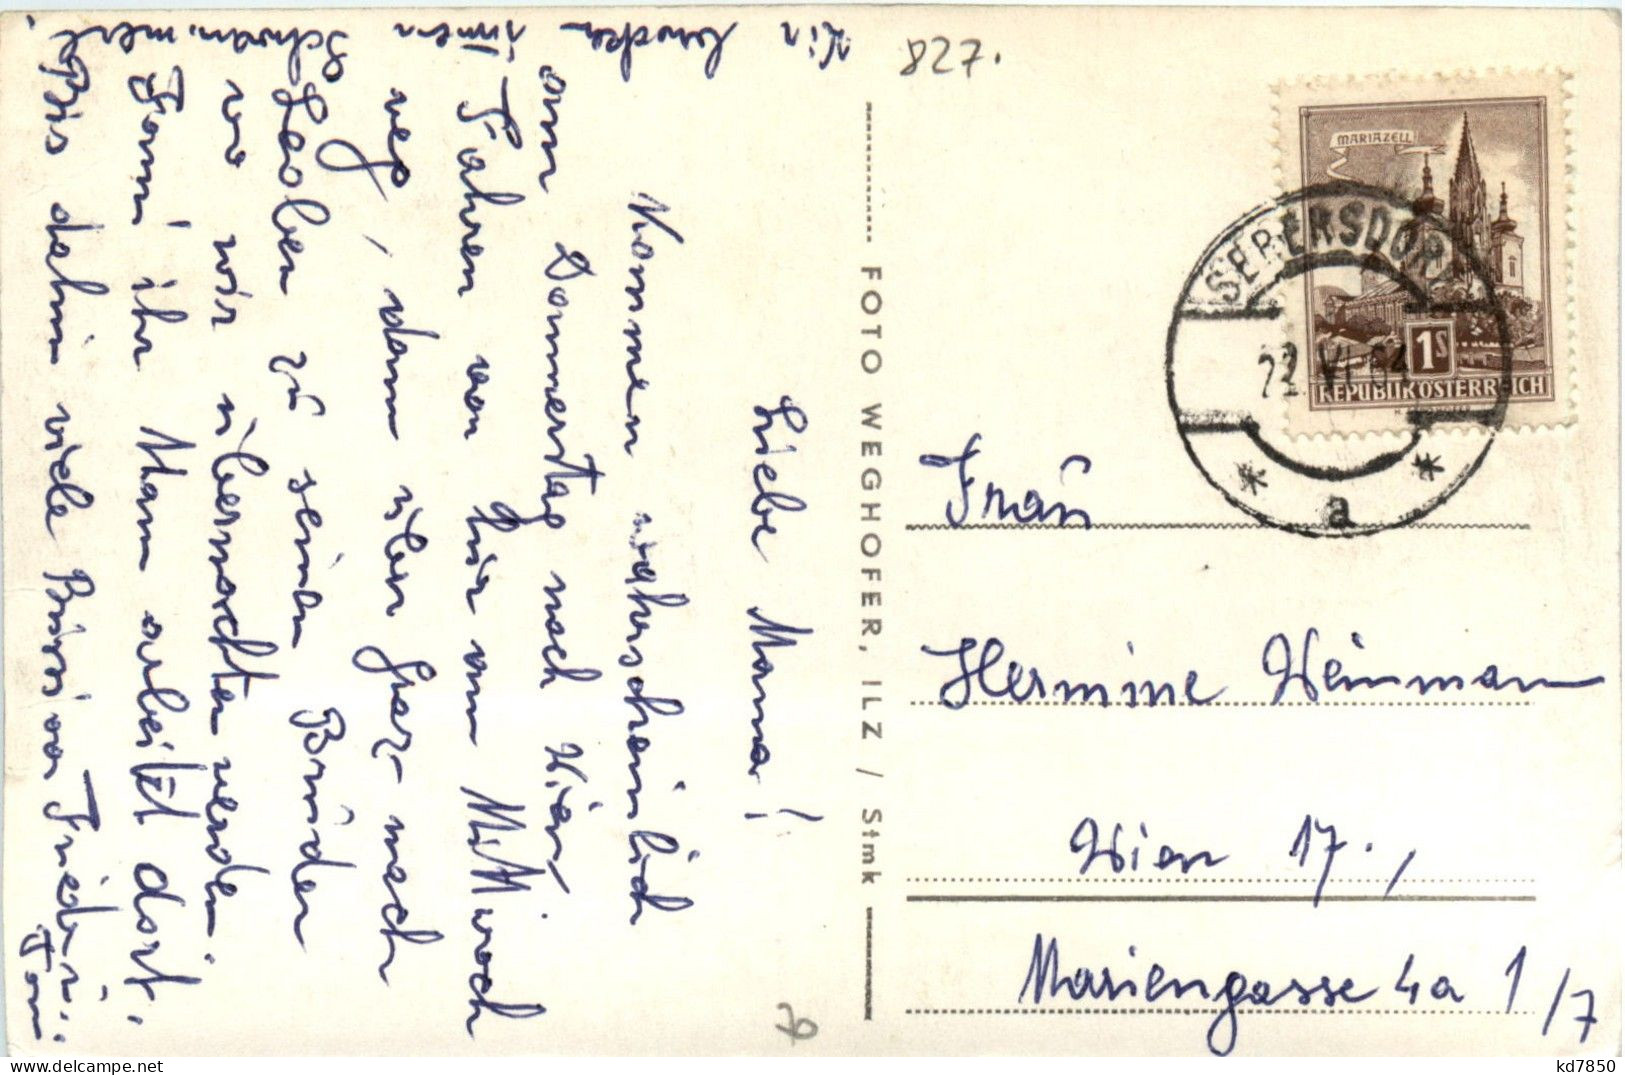 Liebe Mama!
Kommen wahrscheinlich
am Donnerstag nach Wien,
Fahren von hier am Mittwoch
weg, dann über Graz nach
Leoben zu seinem Bruder
wo wir übernachten werden.
Toni ihr Mann arbeitet dort.
Bis dahin viele Bussi von Friederi..
Toni
Wir
Schwammerl
FOTO WEGHOFER, ILZ / Stmk
828.
MARIAZELL
1S
REPUBLIK ÖSTERREICH
SEBERSDORF
22.VI.64
* a *
Frau
Hermine Weinmann
Wien 17.,
Mariengasse 4a 1/7
kd7850